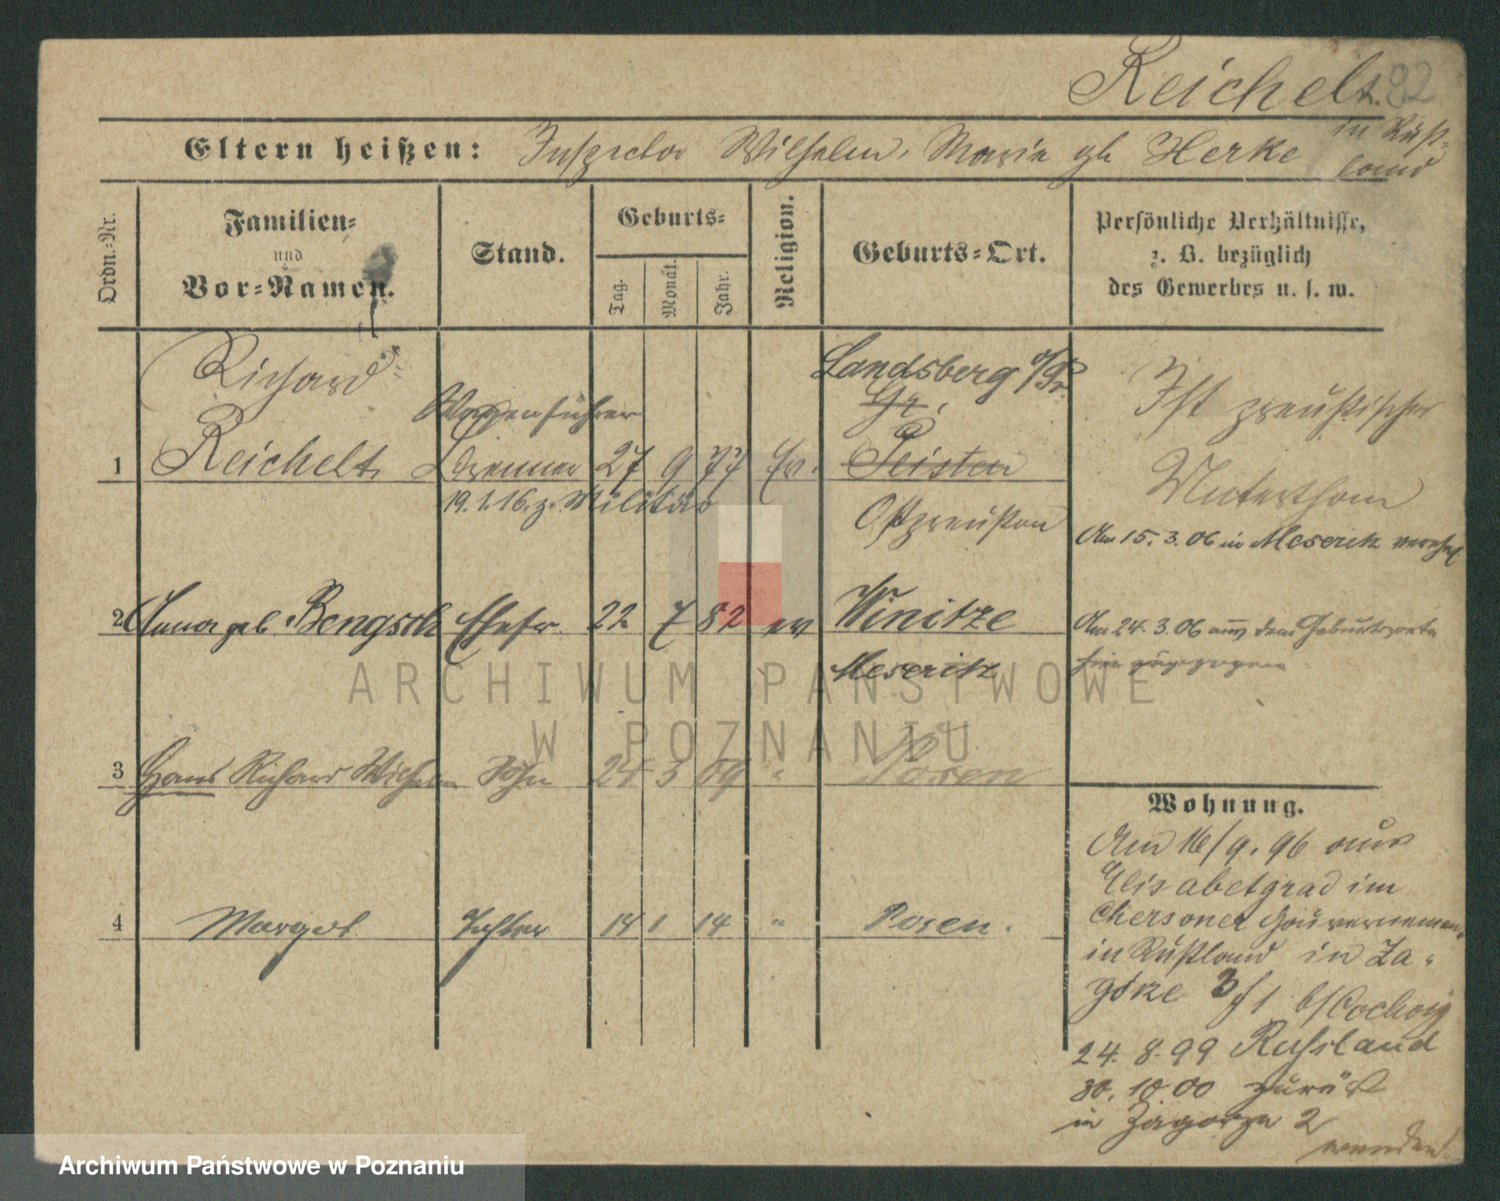 Reichelt. 92
Eltern heißen: Inspector Wilhelm, Marie gb Herke in Ruß-
land
Ordn.-Nr.
Familien-
und
Vor-Namen.
Stand.
Geburts-
Tag.
Monat.
Jahr.
Religion.
Geburts-Ort.
Persönliche Verhältnisse,
z. B. bezüglich
des Gewerbes u. s. w.
Richard
Wagenführer
Landsberg o/Pr.
Ist preußischer
1 Reichelt Brenner 27 9 77 Ev. Peisten
Unterthan
19. 1. 16. z. Militär
Ostpreußen
Am 15. 3. 06 in Meseritz
2 Anna geb. Bengsch Ehefr. 22 7 82 ev Winitze
Meseritz
Am 24. 3. 06 aus dem Geburtsorte
hier zugezogen
3 Hans Richard Wilhelm Sohn 24 3 09 " Posen
4 Margot Tochter 14 1 14 " Posen.
Wohnung.
Am 16/9. 96 aus
Elisabetgrad im
Chersoner Gouvernement
in Rußland in Za-
górze 3 b/
24. 8. 99 Russland
30. 10. 00 zurück
in Zagorze 2
wenden!
ARCHIWUM PAŃSTWOWE
W POZNANIU
Archiwum Państwowe w Poznaniu